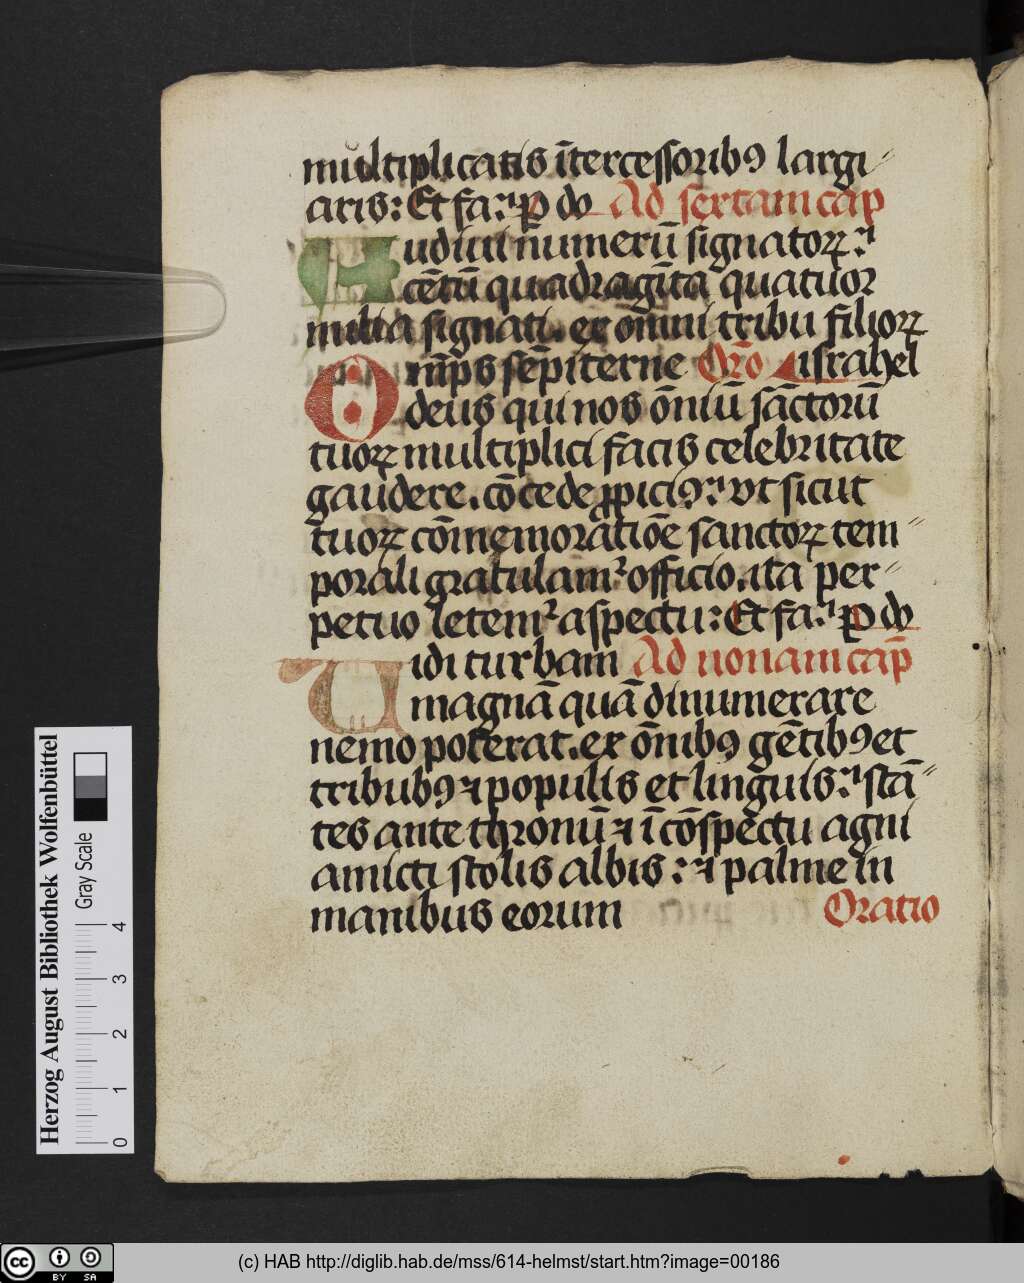 multiplicatis ītercessoribꝰ largi
aris: Et fa.ꝰ ꝑ dō Ad sextam cap̄
Audiui numerū signatoꝝ.
cētū quadragīta quatuor
milia signati. ex om̄ni tribu filioꝝ
Om̄ps sēpiterne Orō israhel
deus qui nos ōniū sāctorū
tuoꝝ multiplici facis celebritate
gaudere. cōcede ꝓpiciꝰ: vt sicut
tuoꝝ cōmemoratiōe sanctoꝝ tem
porali gratulamꝰ officio. ita per
petuo letemꝰ aspectu: Et fa. ꝑ dō
Uidi turbam Ad nonam cap̄
magnā quā dinumerare
nemo poterat. ex ōnibꝰ gētibꝰ et
tribubꝰ ⁊ populis et linguis: stā
tes ante thronū ⁊ ī cōspectu agni
amicti stolis albis: ⁊ palme in
manibus eorum Oratio
Herzog August Bibliothek Wolfenbüttel
Gray Scale
0 1 2 3 4
cc BY SA
(c) HAB http://diglib.hab.de/mss/614-helmst/start.htm?image=00186